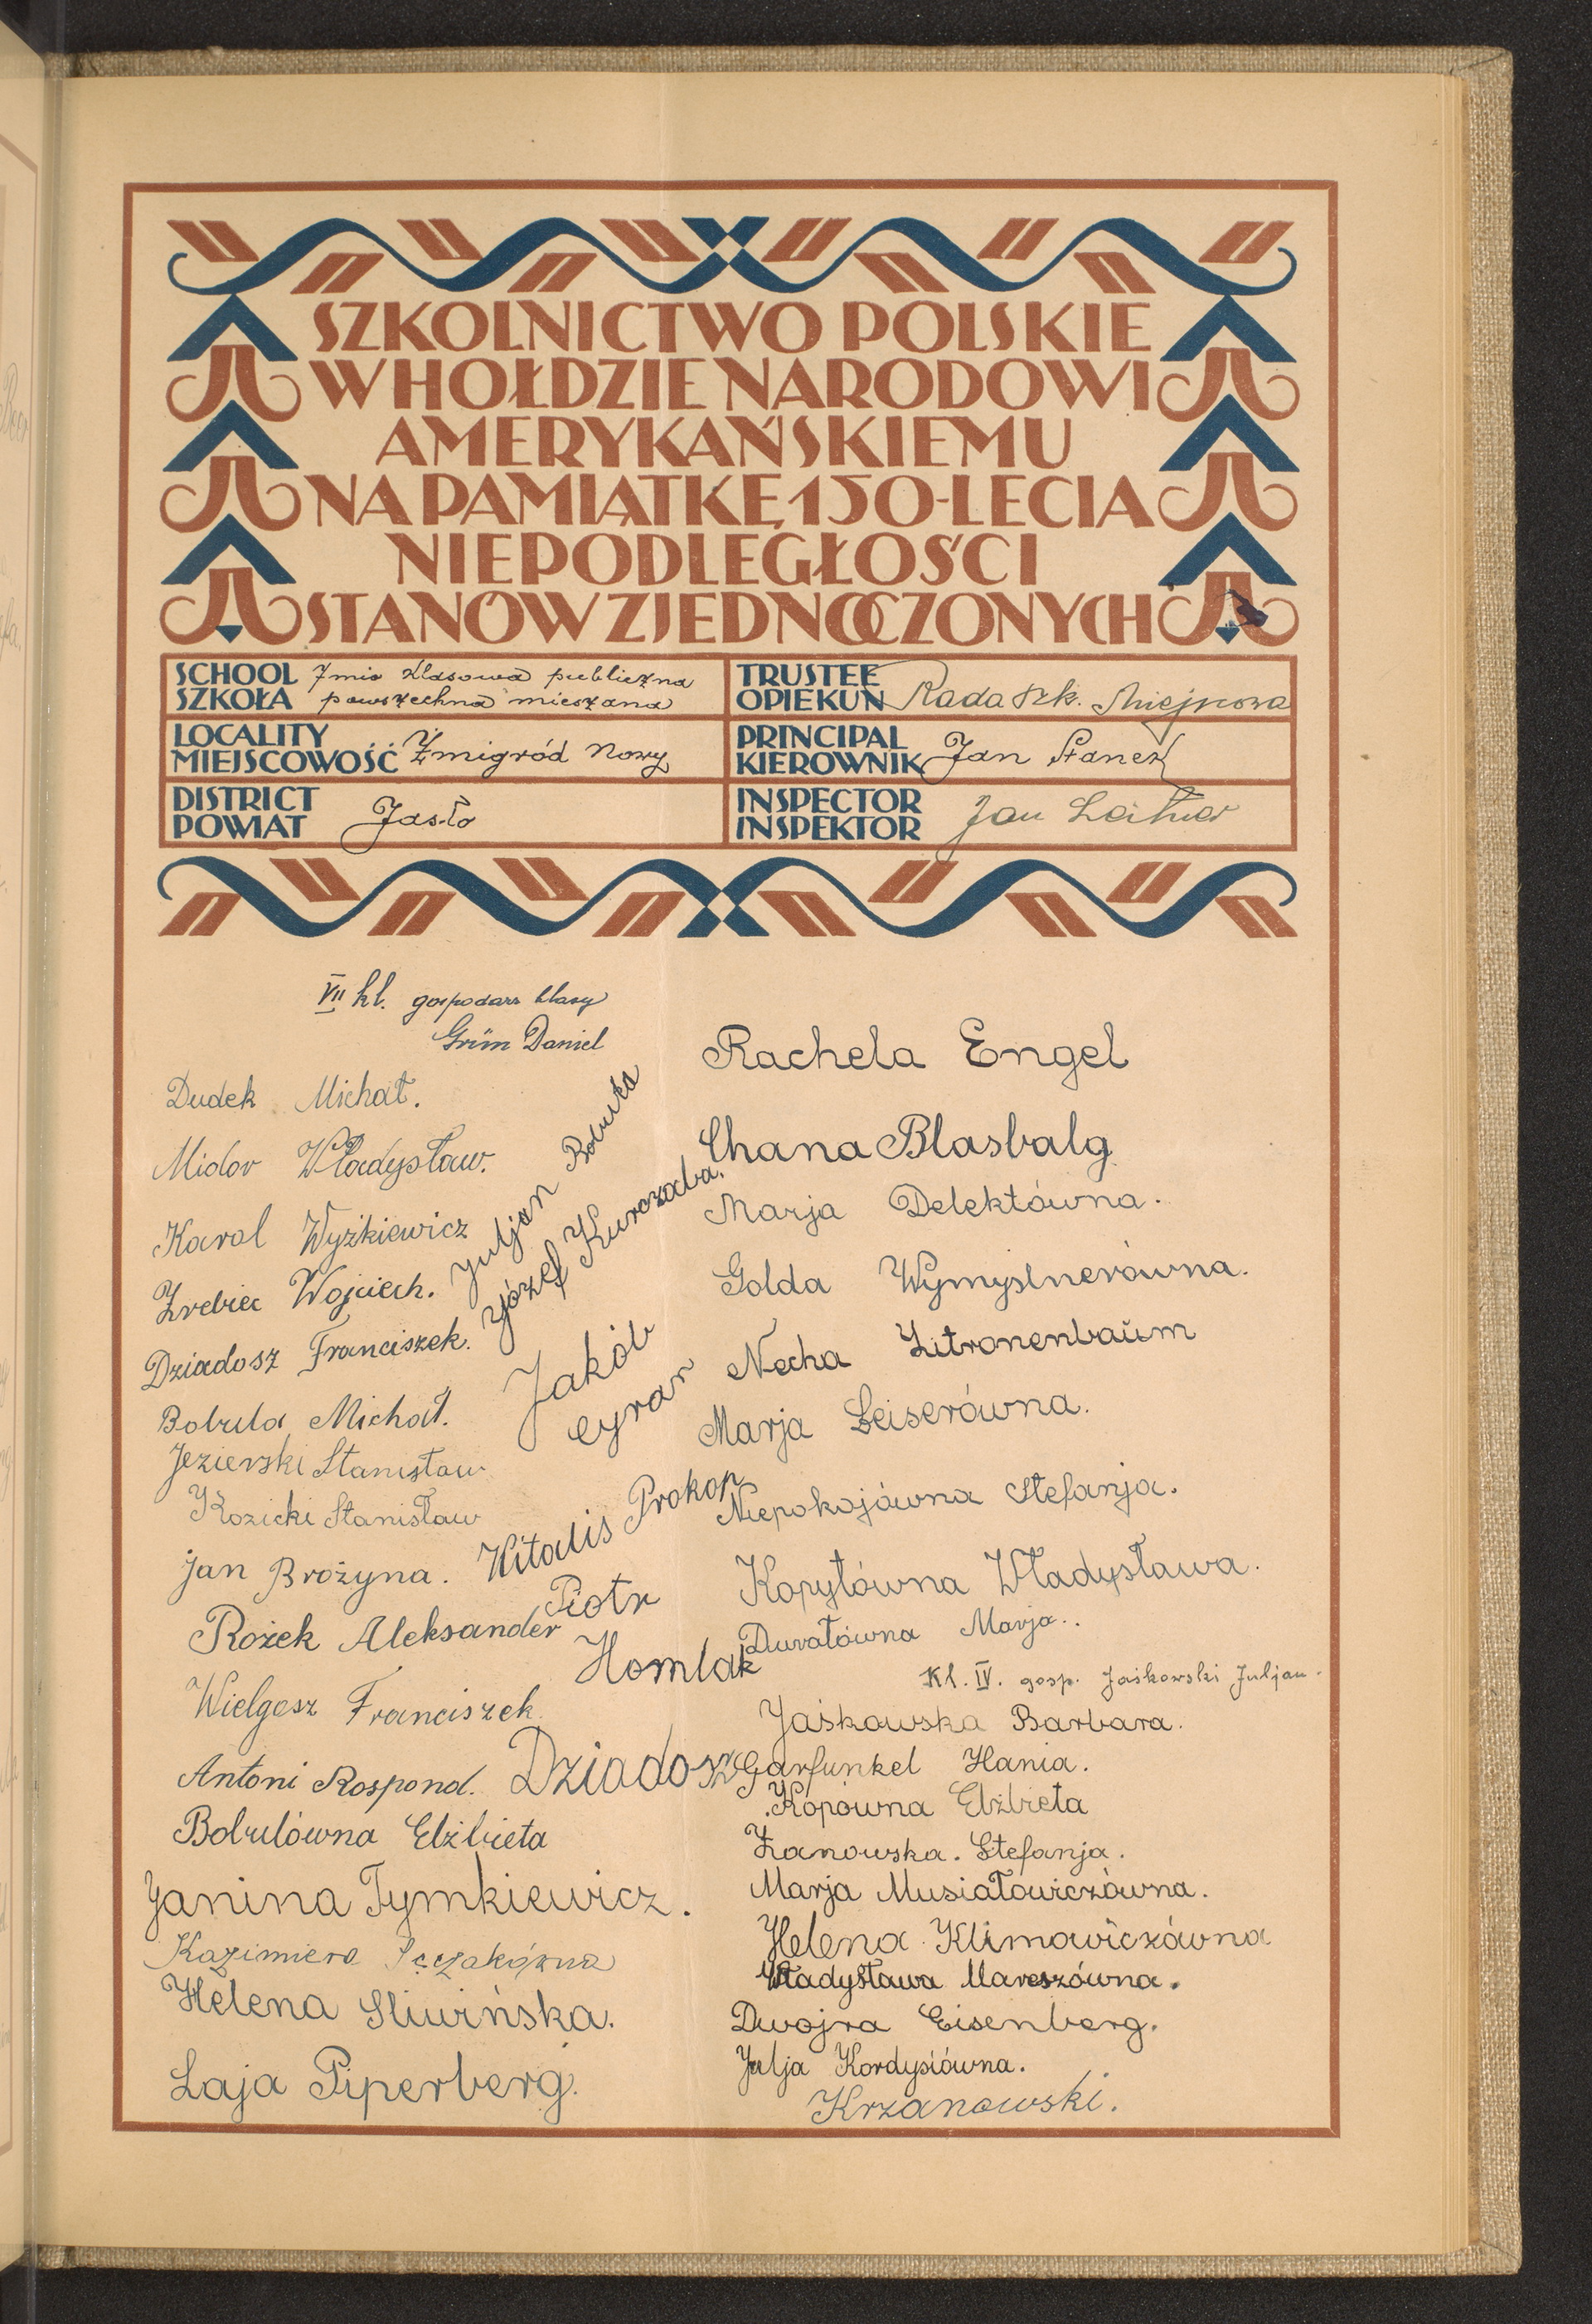 SZKOLNICTWO POLSKIE
W HOŁDZIE NARODOWI
AMERYKAŃSKIEMU
NA PAMIĄTKĘ 150-LECIA
NIEPODLEGŁOŚCI
STANÓW ZJEDNOCZONYCH
SCHOOL
SZKOŁA
7mio klasowa publiczna
powszechna mieszana
TRUSTEE
OPIEKUN
Rada szk. Miejscowa
LOCALITY
MIEJSCOWOŚĆ
Żmigród Nowy
PRINCIPAL
KIEROWNIK
Jan Stanek
DISTRICT
POWIAT
Jasło
INSPECTOR
INSPEKTOR
Jan Leitner
VII kl. gospodarz klasy
Grün Daniel
Dudek Michał.
Midor Władysław.
Karol Wyżkiewicz
Zrebiec Wojciech.
Dziadosz Franciszek.
Bobula Michał.
Jezierski Stanisław
Kozicki Stanisław
Jan Brożyna.
Rożek Aleksander
Wielgosz Franciszek.
Antoni Rospond.
Bobulówna Elżbieta
Janina Tymkiewicz.
Kazimiera
Helena Sliwińska.
Laja Piperberg.
Juljan Bobula
Józef Kurczaba.
Jakób
Cyran
Witalis Prokop
Piotr
Homlak
Dziadosz
Rachela Engel
Chana Blasbalg
Marja Delektówna.
Golda Wymyslnerówna.
Necha Zitronenbaum
Marja Leiserówna.
Niepokojówna Stefanja.
Kopytówna Władysława.
Duvałówna Marja..
Kl. IV. gosp. Jaśkowski Juljan.
Jaśkowska Barbara.
Garfunkel Hania.
Kopówna Elżbieta
Żanowska. Stefanja.
Marja Musiałowiczówna.
Helena Klimowiczówna
Władysława Mareszówna.
Dwojra Eisenberg.
Julja Kordysiówna.
Krzanowski.